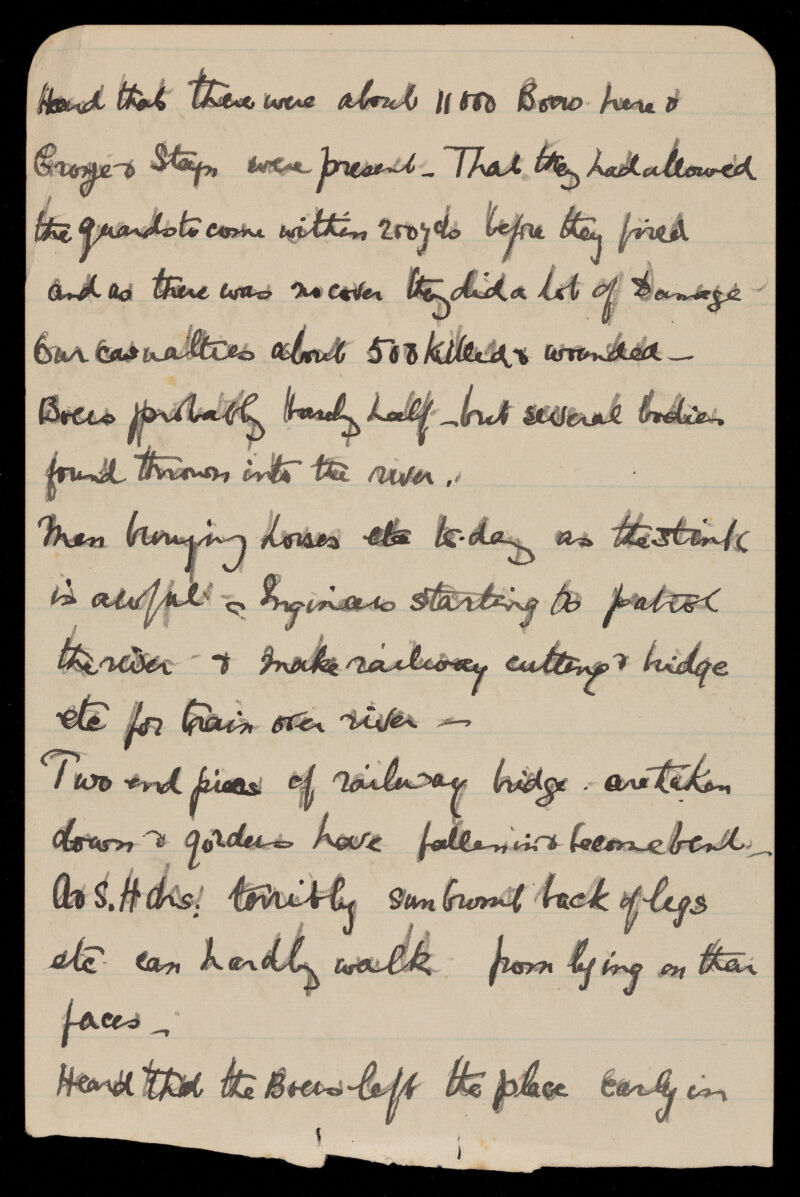 Heard that there were about 11000 Boers here &
Cronje & Steyn were present - That they had allowed
the guards to come within 200 yds before they fired
and as there was no cover they did a lot of Damage
Our casualties about 500 killed & wounded -
Boers probably barely half - but several bodies
found thrown into the river.
Men burying horses etc to-day as the stink
is awful - Engineers starting to patrol
the river & make railway cutting & bridge
etc for train over river -
Two end piers of railway bridge are taken
down & girders have fallen in & become bent -
A & S. Hdrs. terribly sunburnt back of legs
etc can hardly walk from lying on their
faces -
Heard that the Boers left the place early in